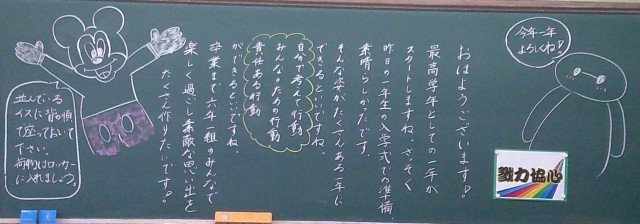 今年一年
よろしくね!
おはようございます!
最高学年としての一年が
スタートしますね。さっそく
昨日の一年生の入学式での準備、
素晴らしかったです。
そんな姿がたくさんある一年に
できるといいですね。
自分で考えて行動
みんなのための行動
責任ある行動
ができるといいですね。
卒業まで、六年一組のみんなで
楽しく過ごし素敵な思い出を
たくさん作りたいです!
並んでいる
イスに背の順
で座っておいて
下さい。
荷物はロッカー
に入れましょう。
戮力協心